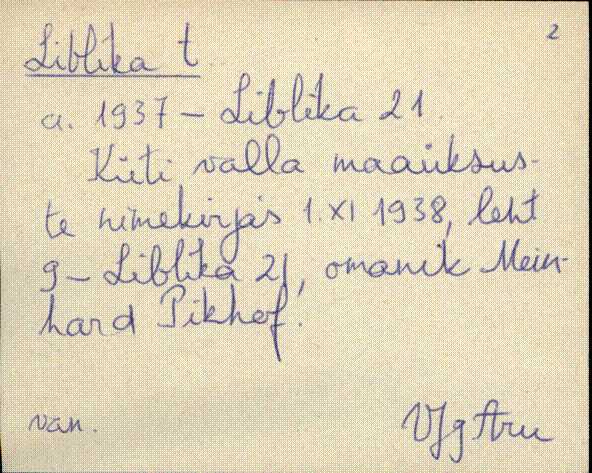 2
Liblika t
a. 1937 – Liblika 21.
Küti valla maaüksus-
te nimekirjas 1.XI 1938, leht
9 – Liblika 21, omanik Mein-
hard Pikhof.
van.
VJg Aru